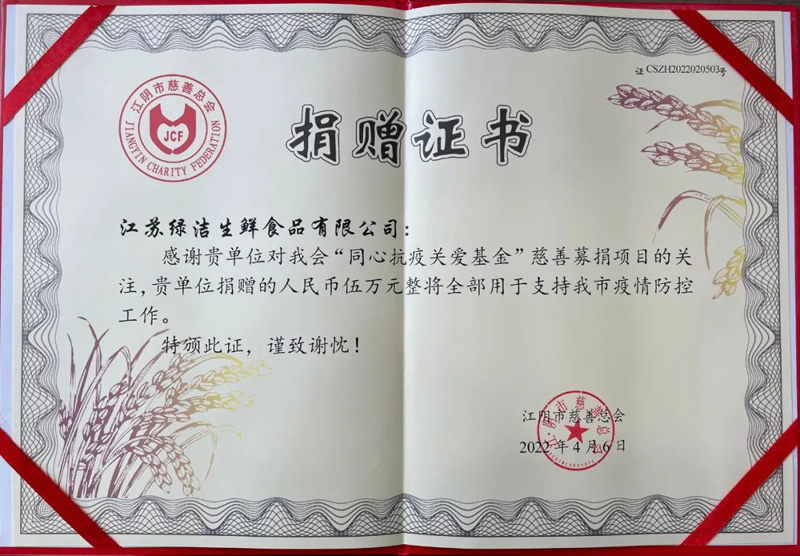 证 CSZH2022020503号
江阴市慈善总会
JCF
JIANGYIN CHARITY FEDERATION
捐赠证书
江苏绿洁生鲜食品有限公司：
感谢贵单位对我会“同心抗疫关爱基金”慈善募捐项目的关
注，贵单位捐赠的人民币伍万元整将全部用于支持我市疫情防控
工作。
特颁此证，谨致谢忱！
江阴市慈善总会
江阴市慈善总会
2022年4月6日